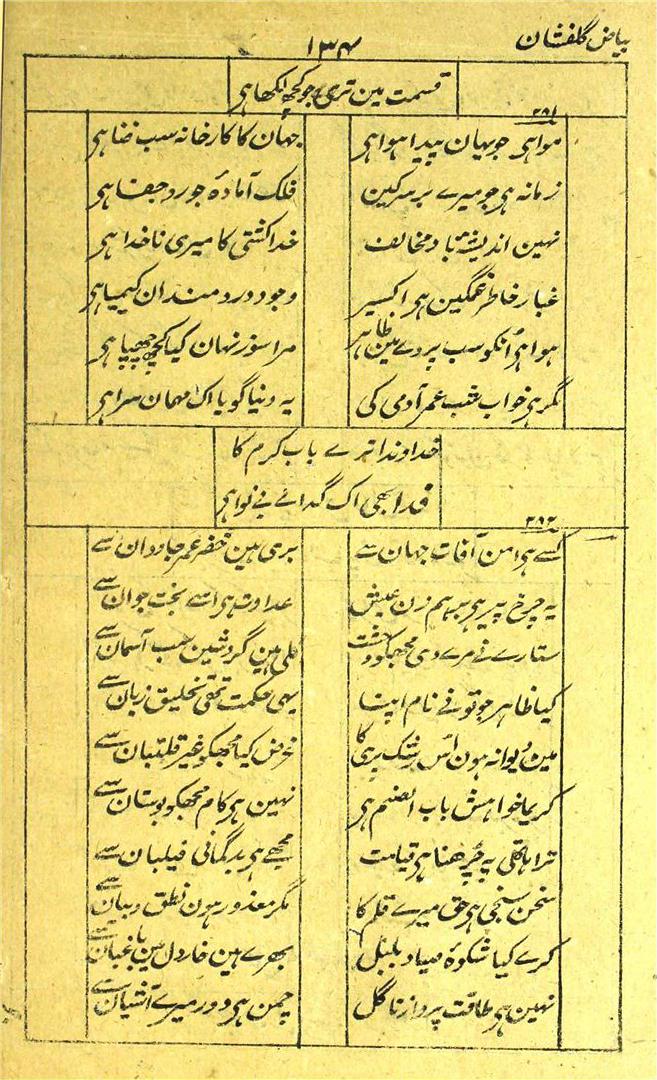 بیاض گلفشان
۱۳۴
قسمت مین تری جو کچھ لکھا ہی
۲۹۱
ہوا ہی جو یہان پیدا ہوا ہی جہان کا کارخانہ سب فنا ہی
زمانہ ہی جو میرے بر سر کین فلک آمادۂ جور و جفا ہی
نہین اندیشۂ باد مخالف خدا کشتی کا میری ناخدا ہی
غبار خاطر غمگین ہی اکسیر وجود دردمندان کیمیا ہی
ہوا ہی انکو سب پردے مین ظاہر مرا سوز نہان کیا کچھ چھپا ہی
مگر ہی خواب شب عمر آدمی کی یہ دنیا گویا اک مہمان سرا ہی
خداوندا ترے باب کرم کا
فدا بھی اک گداے بے نوا ہی
۲۹۲
کسے ہی امن آفات جہان سے بری ہین خضر عمر جاودان سے
یہ چرخ پیر ہی برہم زن عیش عداوت ہی اسے بخت جوان سے
ستارے نے مرے دی مجھکو وحشت ملی ہین گردشین سب آسمان سے
کیا ظاہر جو تونے نام اپنا یہی حکمت تھی تخلیق زبان سے
مین دیوانہ ہون اس رشک پری کا غرض کیا مجھکو غیر قلتبان سے
کریما خواہش باب الصنم ہی نہین ہی کام مجھکو بوستان سے
ترا ہاتھی پہ چڑھنا ہی قیامت مجھے ہی بدگمانی فیلبان سے
سخن سنجی ہی حق میرے قلم کا مگر معذور ہون نطق و بیان سے
کرے کیا شکوۂ صیاد بلبل بھرے ہین خار دل مین باغبان سے
نہین ہی طاقت پرواز تا گل چمن ہی دور میرے آشیان سے